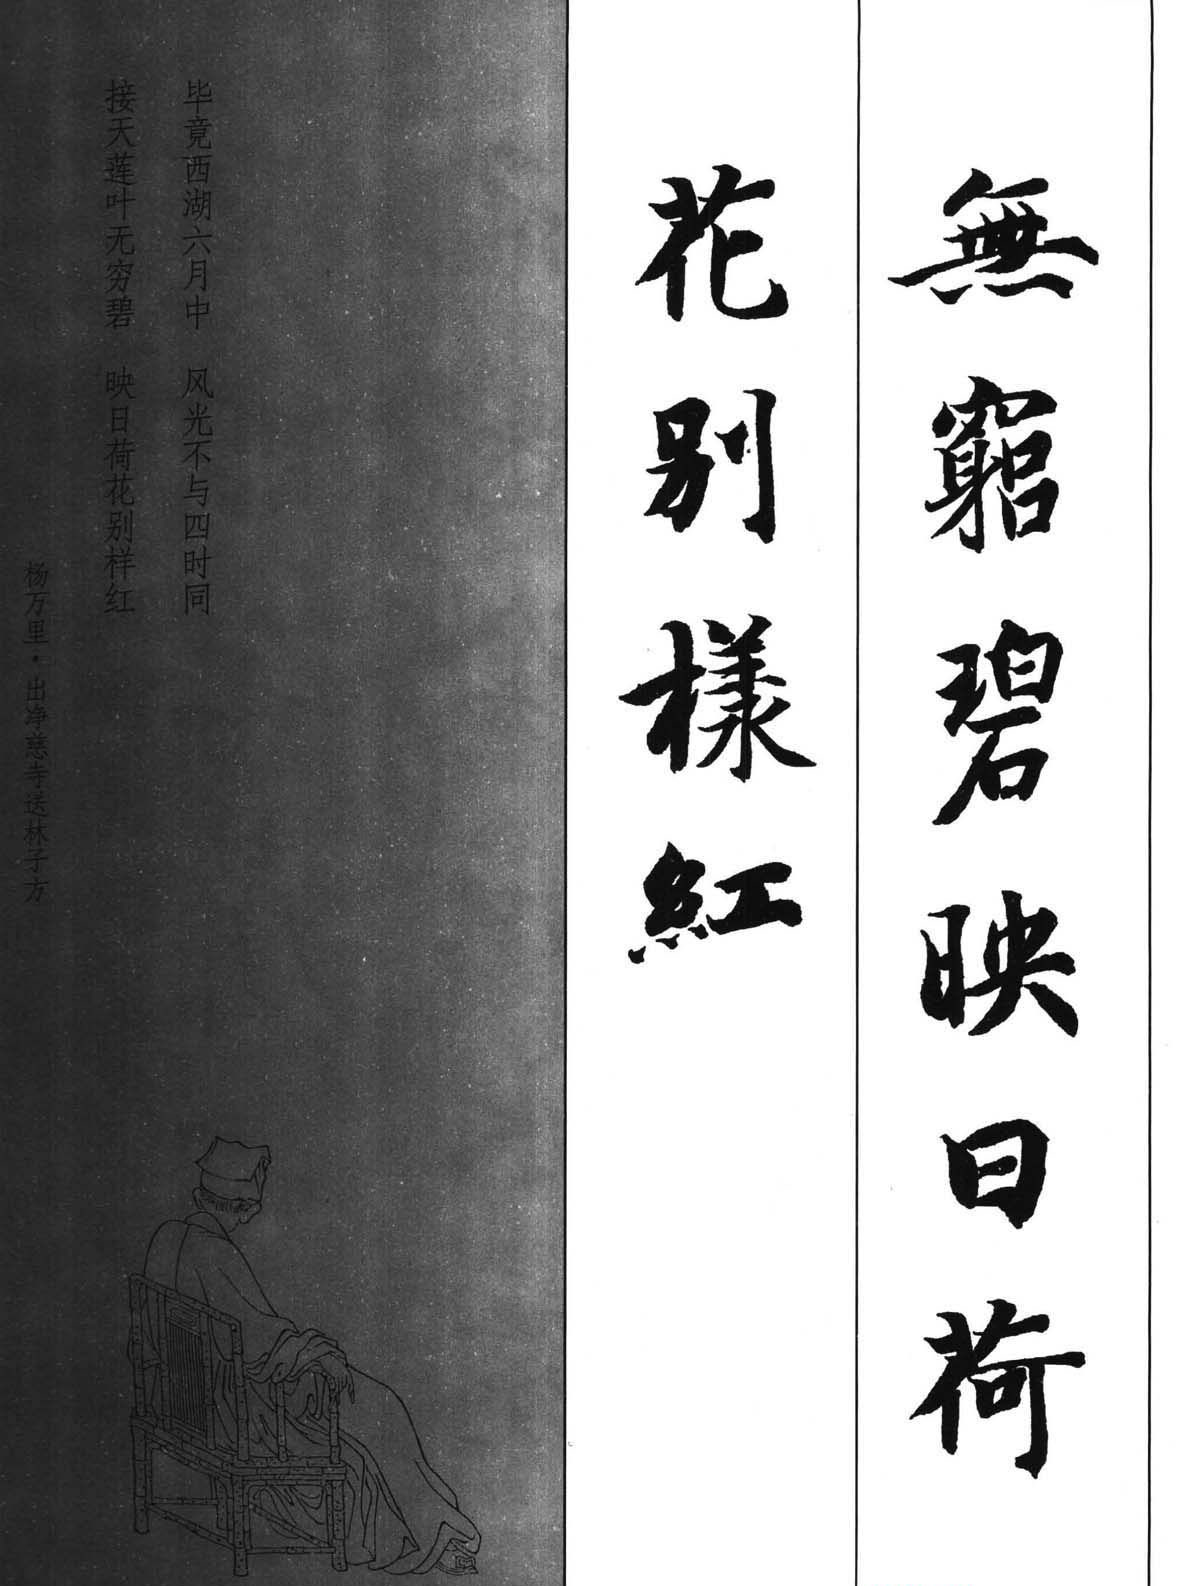 無窮碧映日荷
花别樣紅
毕竟西湖六月中 风光不与四时同
接天莲叶无穷碧 映日荷花别样红
杨万里·出净慈寺送林子方